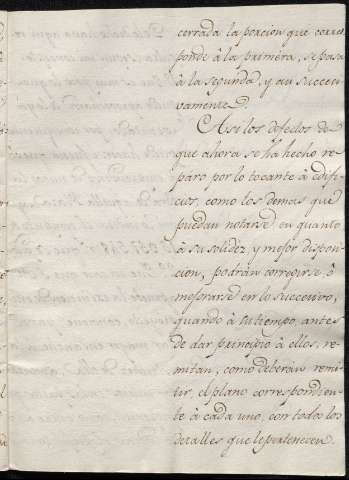 cerrada la porcion que corres
ponde à la primera, se pasa
à la segunda, y asi succesi
vamente.
Asi los defectos de
que ahora se ha hecho re
paro por lo tocante à edifi
cios, como los demas que
puedan notarse en quanto
à su solidez, y mejor disposi
cion, podrán corregirse, ò
mejorarse en lo succesivo,
quando à su tiempo, antes
de dar principio à ellos, re
mitan, como deberàn remi
tir, el plano correspondien
te à cada uno, con todos los
detalles que le pertenecen.